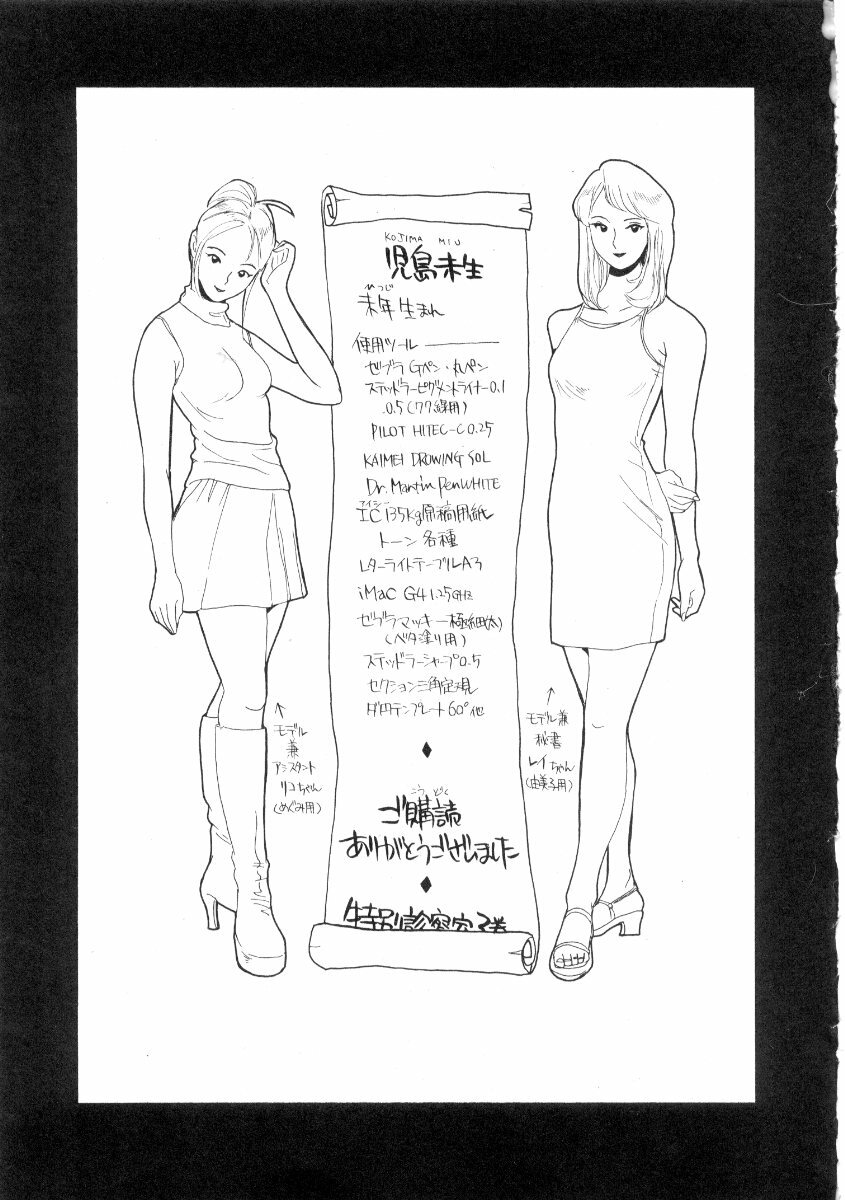 KOJIMA MIU
児島未生
ひつじ
未年生まれ
使用ツール
ゼブラ Gペン・丸ペン
ステッドラーピグメントライナー0.1
0.5(ワク線用)
PILOT HITEC-C 0.25
KAIMEI DROWING SOL
Dr. Martin Pen WHITE
アイシー
IC 135kg原稿用紙
トーン各種
LターライトテーブルA3
iMac G4 1.25GHz
ゼブラマッキー極細(太)
(ベタ塗り用)
ステッドラーシャープ0.5
セクション三角定規
ダ円テンプレート60°他
こう どく
ご購読
ありがとうございました
特別診察室2巻
↑
モデル
兼
アシスタント
リコちゃん
(めぐみ用)
↑
モデル兼
秘書
レイちゃん
(由美子用)